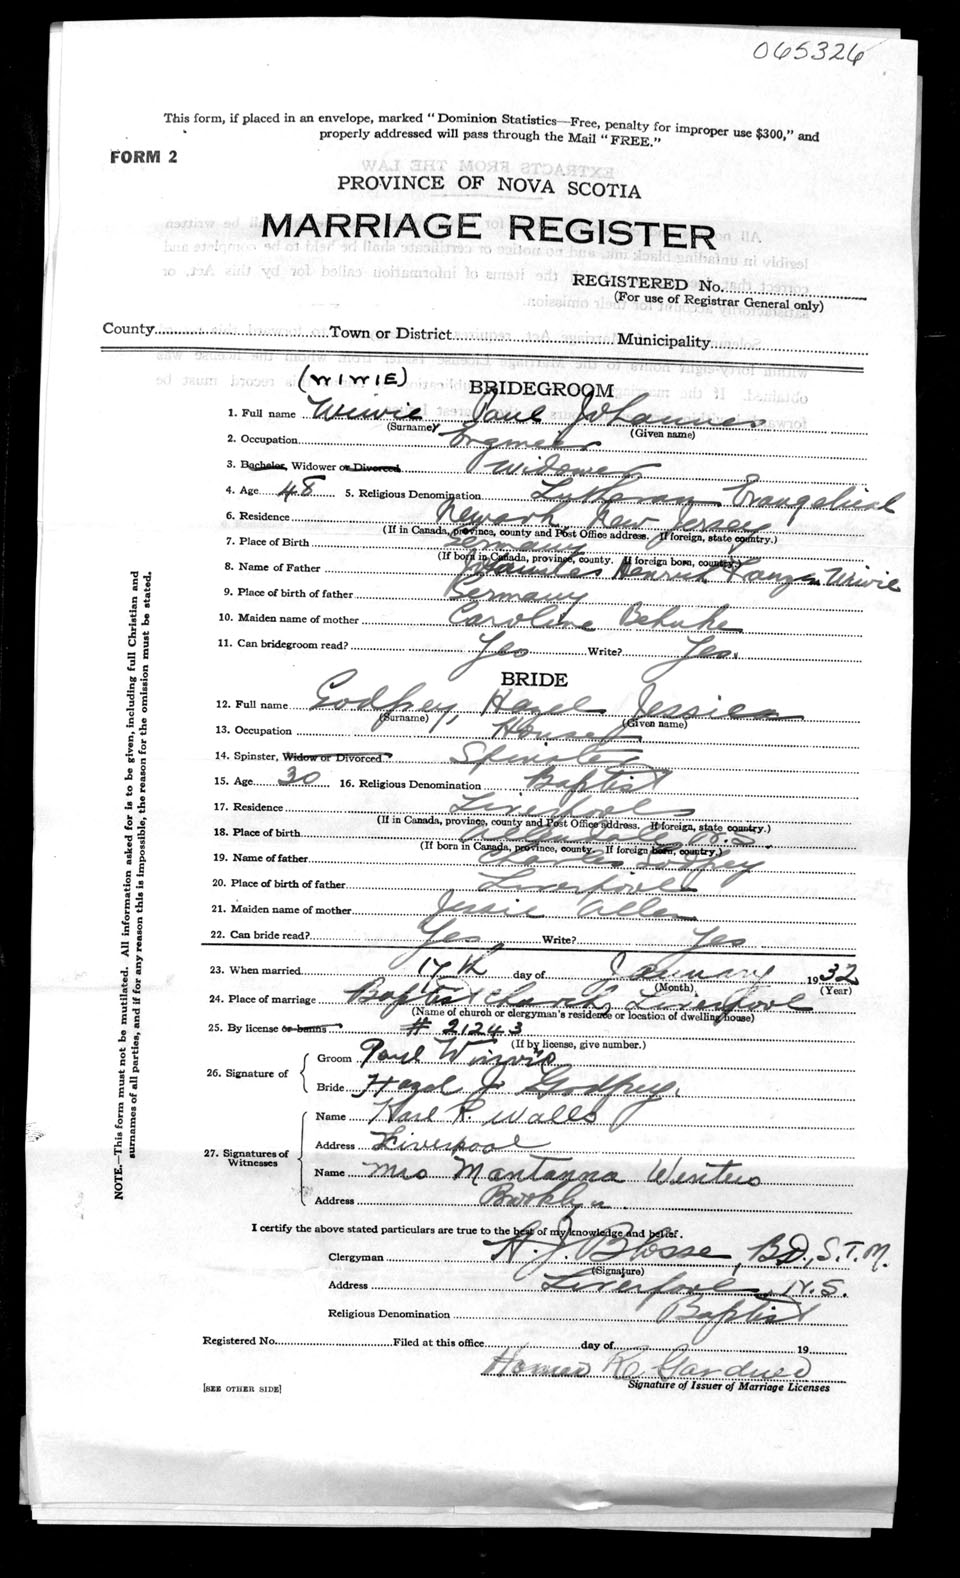 065326
This form, if placed in an envelope, marked "Dominion Statistics—Free, penalty for improper use $300," and
properly addressed will pass through the Mail "FREE."
FORM 2
PROVINCE OF NOVA SCOTIA
MARRIAGE REGISTER
REGISTERED No.
(For use of Registrar General only)
County Town or District Municipality
(WIWIE)
BRIDEGROOM
1. Full name Wiwie Paul Johannes
(Surname) (Given name)
2. Occupation Engineer
3. Bachelor, Widower or Divorced Widower
4. Age 48 5. Religious Denomination Lutheran Evangelical
6. Residence Newark New Jersey
(If in Canada, province, county and Post Office address. If foreign, state country.)
7. Place of Birth Germany
(If born in Canada, province, county. If foreign born, country.)
8. Name of Father Johannes Henrich Wiwie
9. Place of birth of father Germany
10. Maiden name of mother Caroline Behnke
11. Can bridegroom read? Yes Write? Yes.
BRIDE
12. Full name Godfrey, Hazel Jessica
(Surname) (Given name)
13. Occupation House
14. Spinster, Widow or Divorced Spinster
15. Age 30 16. Religious Denomination Baptist
17. Residence Liverpool
(If in Canada, province, county and Post Office address. If foreign, state country.)
18. Place of birth Allendale N.S.
(If born in Canada, province, county. If foreign born, country.)
19. Name of father Charles Godfrey
20. Place of birth of father Liverpool
21. Maiden name of mother Jessie Allen
22. Can bride read? Yes, Write? Yes
23. When married 17th day of January 1932
(Month) (Year)
24. Place of marriage Baptist Church, Liverpool
(Name of church or clergyman's residence or location of dwelling house)
25. By license or banns # 21243
(If by license, give number.)
26. Signature of
Groom Paul Wiwie
Bride Hazel J. Godfrey.
27. Signatures of Witnesses
Name Karl R. Walls
Address Liverpool
Name Mrs Mantanna Winters
Address Brooklyn.
I certify the above stated particulars are true to the best of my knowledge and belief.
Clergyman A. J. Blosse, B.D., S.T.M.
(Signature)
Address Liverpool, N.S.
Religious Denomination Baptist
Registered No. Filed at this office day of 19
Homer K. Gardner
Signature of Issuer of Marriage Licenses
[SEE OTHER SIDE]
NOTE.—This form must not be mutilated. All information asked for is to be given, including full Christian and
surnames of all parties, and if for any reason this is impossible, the reason for the omission must be stated.